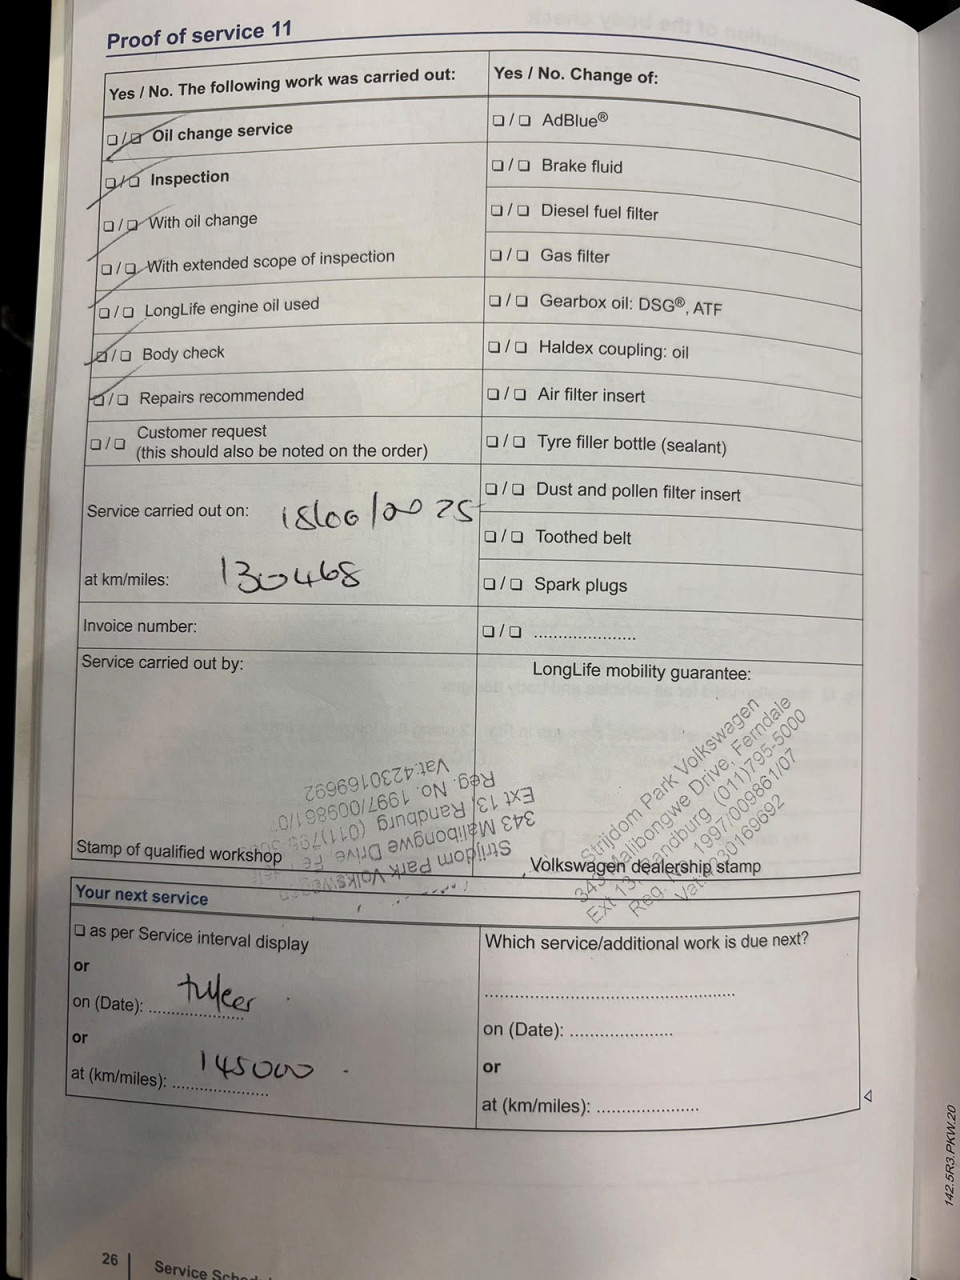 Proof of service 11
Yes / No. The following work was carried out:
❏ / ❏ Oil change service
❏ / ❏ Inspection
❏ / ❏ With oil change
❏ / ❏ With extended scope of inspection
❏ / ❏ LongLife engine oil used
❏ / ❏ Body check
❏ / ❏ Repairs recommended
❏ / ❏ Customer request
(this should also be noted on the order)
Service carried out on:
at km/miles: 130468
Invoice number:
Service carried out by:
Stamp of qualified workshop
Strijdom Park Volkswagen
343 Malibongwe Drive, Fe
Ext 13, Randburg (011)795
Reg. No. 1997/009861/07
Vat:4230169692
Yes / No. Change of:
❏ / ❏ AdBlue®
❏ / ❏ Brake fluid
❏ / ❏ Diesel fuel filter
❏ / ❏ Gas filter
❏ / ❏ Gearbox oil: DSG®, ATF
❏ / ❏ Haldex coupling: oil
❏ / ❏ Air filter insert
❏ / ❏ Tyre filler bottle (sealant)
❏ / ❏ Dust and pollen filter insert
❏ / ❏ Toothed belt
❏ / ❏ Spark plugs
❏ / ❏ .....................
LongLife mobility guarantee:
Strijdom Park Volkswagen
343 Malibongwe Drive, Ferndale
Ext 13, Randburg (011)795-5000
Reg. No. 1997/009861/07
Vat:4230169692
Volkswagen dealership stamp
Your next service
❏ as per Service interval display
or
on (Date): ...................
or
at (km/miles): 145000
Which service/additional work is due next?
..................................................
on (Date): .....................
or
at (km/miles): .....................
142.5R3.PKW.20
26
Service